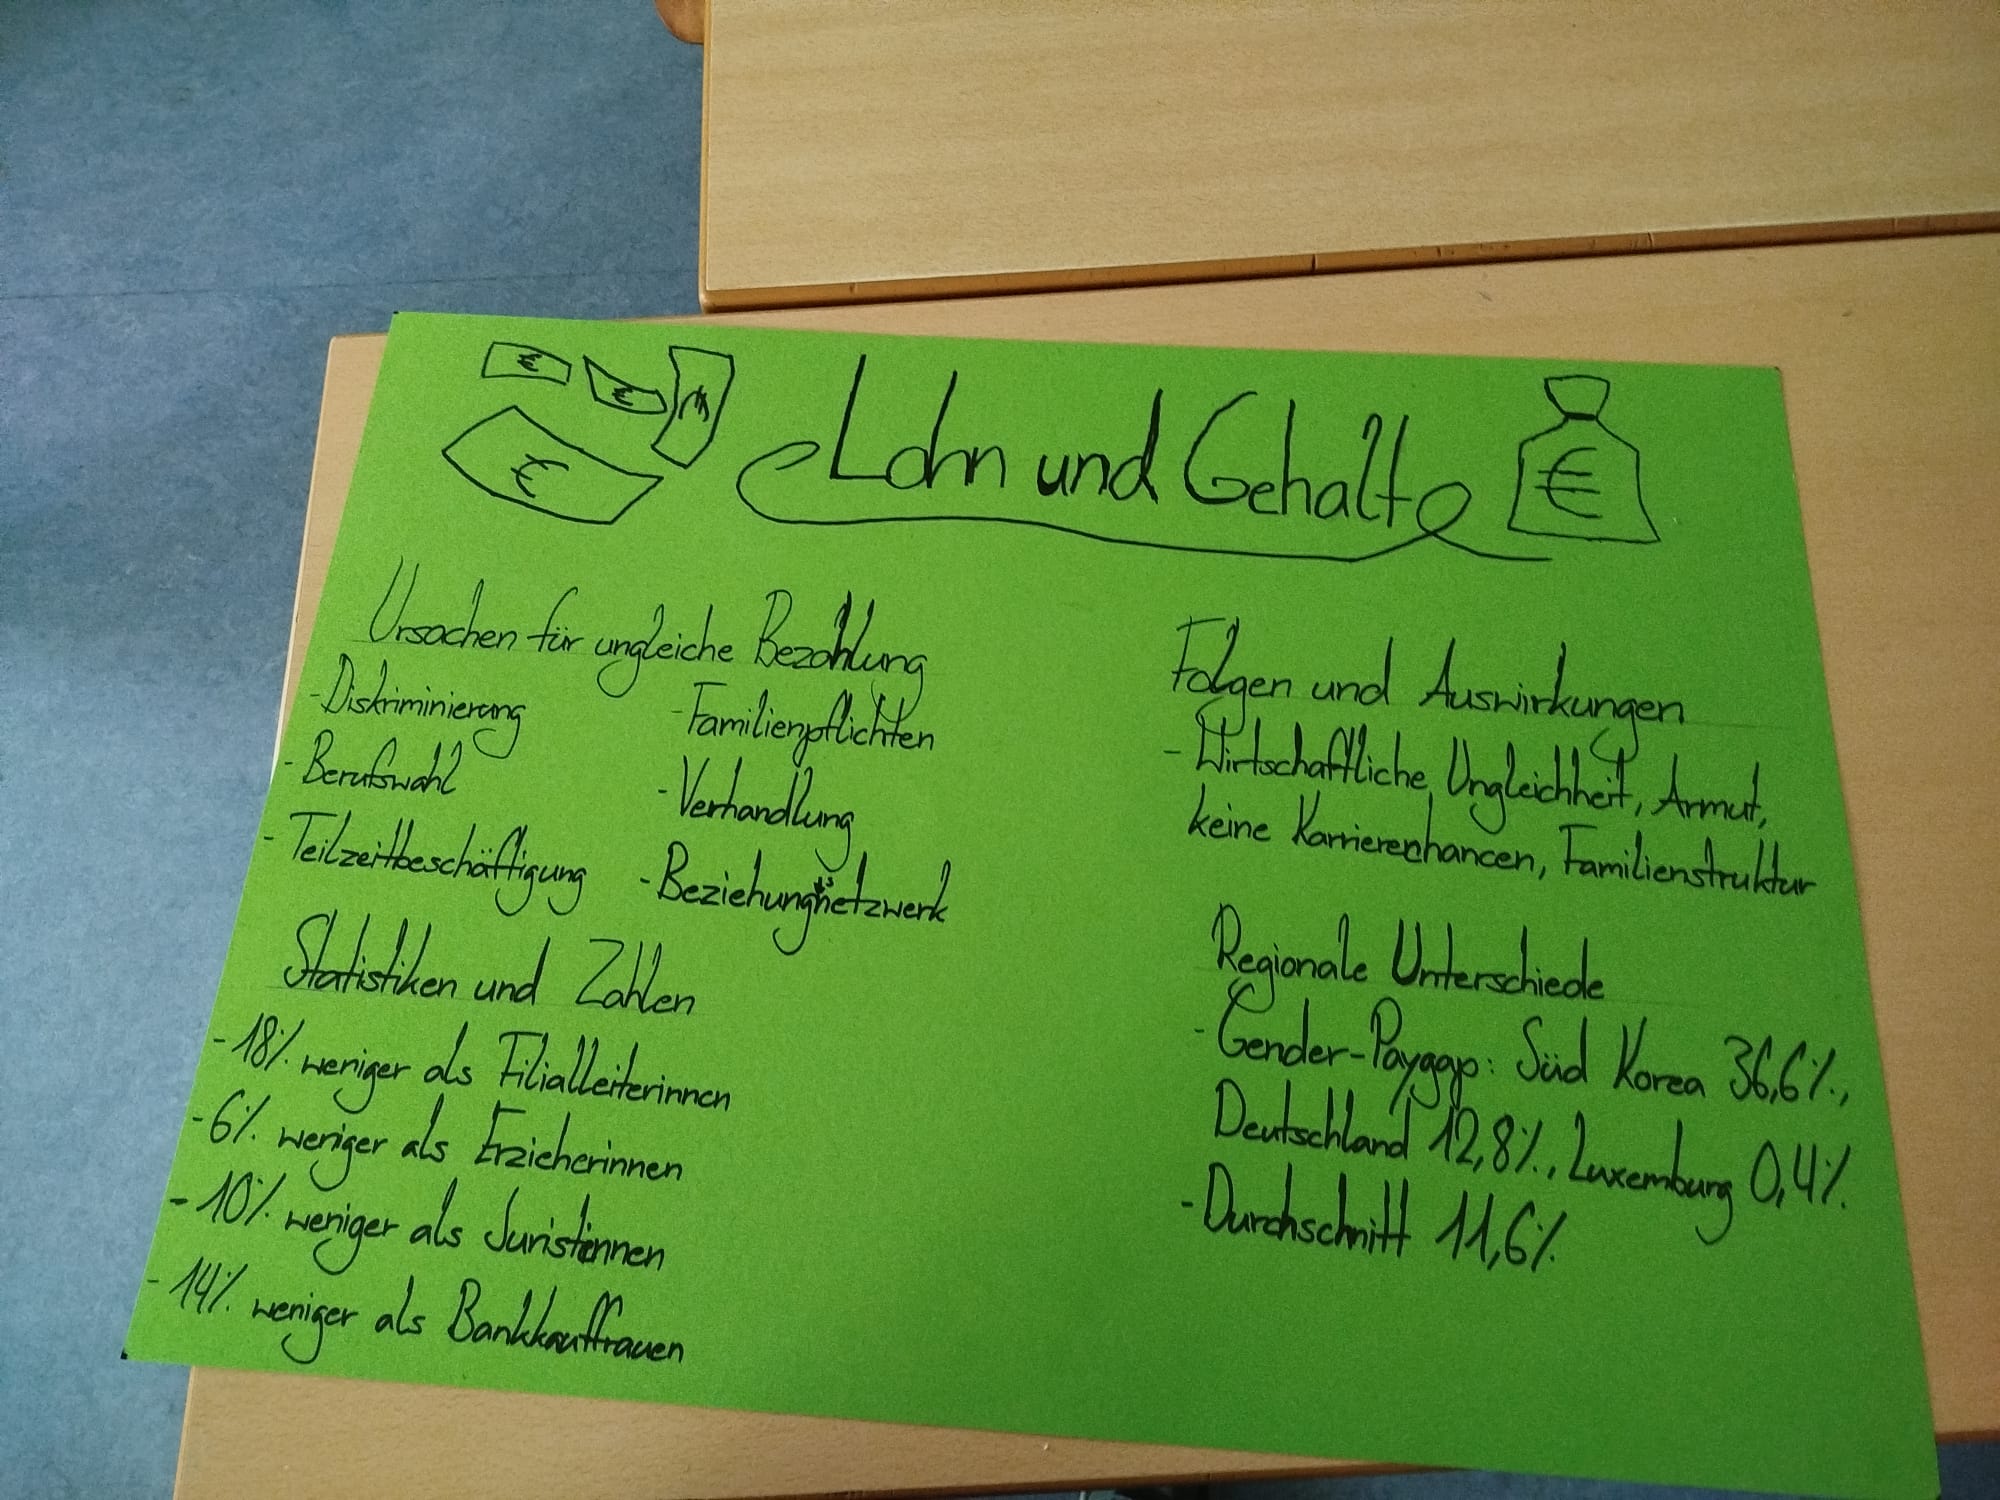 €
€
€
€
Lohn und Gehalt
€
Ursachen für ungleiche Bezahlung
- Diskriminierung
- Berufswahl
- Teilzeitbeschäftigung
- Familienpflichten
- Verhandlung
- Beziehungsnetzwerk
Statistiken und Zahlen
- 18% weniger als Filialleiterinnen
- 6% weniger als Erzieherinnen
- 10% weniger als Juristinnen
- 14% weniger als Bankkauffrauen
Folgen und Auswirkungen
- Wirtschaftliche Ungleichheit, Armut,
keine Karrierechancen, Familienstruktur
Regionale Unterschiede
- Gender-Paygap: Süd Korea 36,6%,
Deutschland 12,8%, Luxemburg 0,4%
- Durchschnitt 11,6%